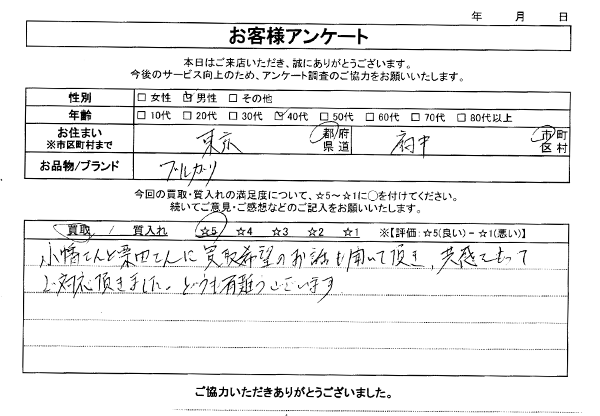 年 月 日
お客様アンケート
本日はご来店いただき、誠にありがとうございます。
今後のサービス向上のため、アンケート調査のご協力をお願いいたします。
性別 □女性 ☑男性 □その他
年齢 □10代 □20代 □30代 ☑40代 □50代 □60代 □70代 □80代以上
お住まい ※市区町村まで 東京 都府県道 府中 市町区村
お品物/ブランド ブルガリ
今回の買取・質入れの満足度について、☆5～☆1に○を付けてください。
続いてご意見・ご感想などのご記入をお願いいたします。
買取 / 質入れ ☆5 ☆4 ☆3 ☆2 ☆1 ※【評価:☆5(良い)－☆1(悪い)】
小幡さんと栗田さんに買取希望のお話も聞いて頂き、共感をもって
ご対応頂きました。どうも有難うございます
ご協力いただきありがとうございました。